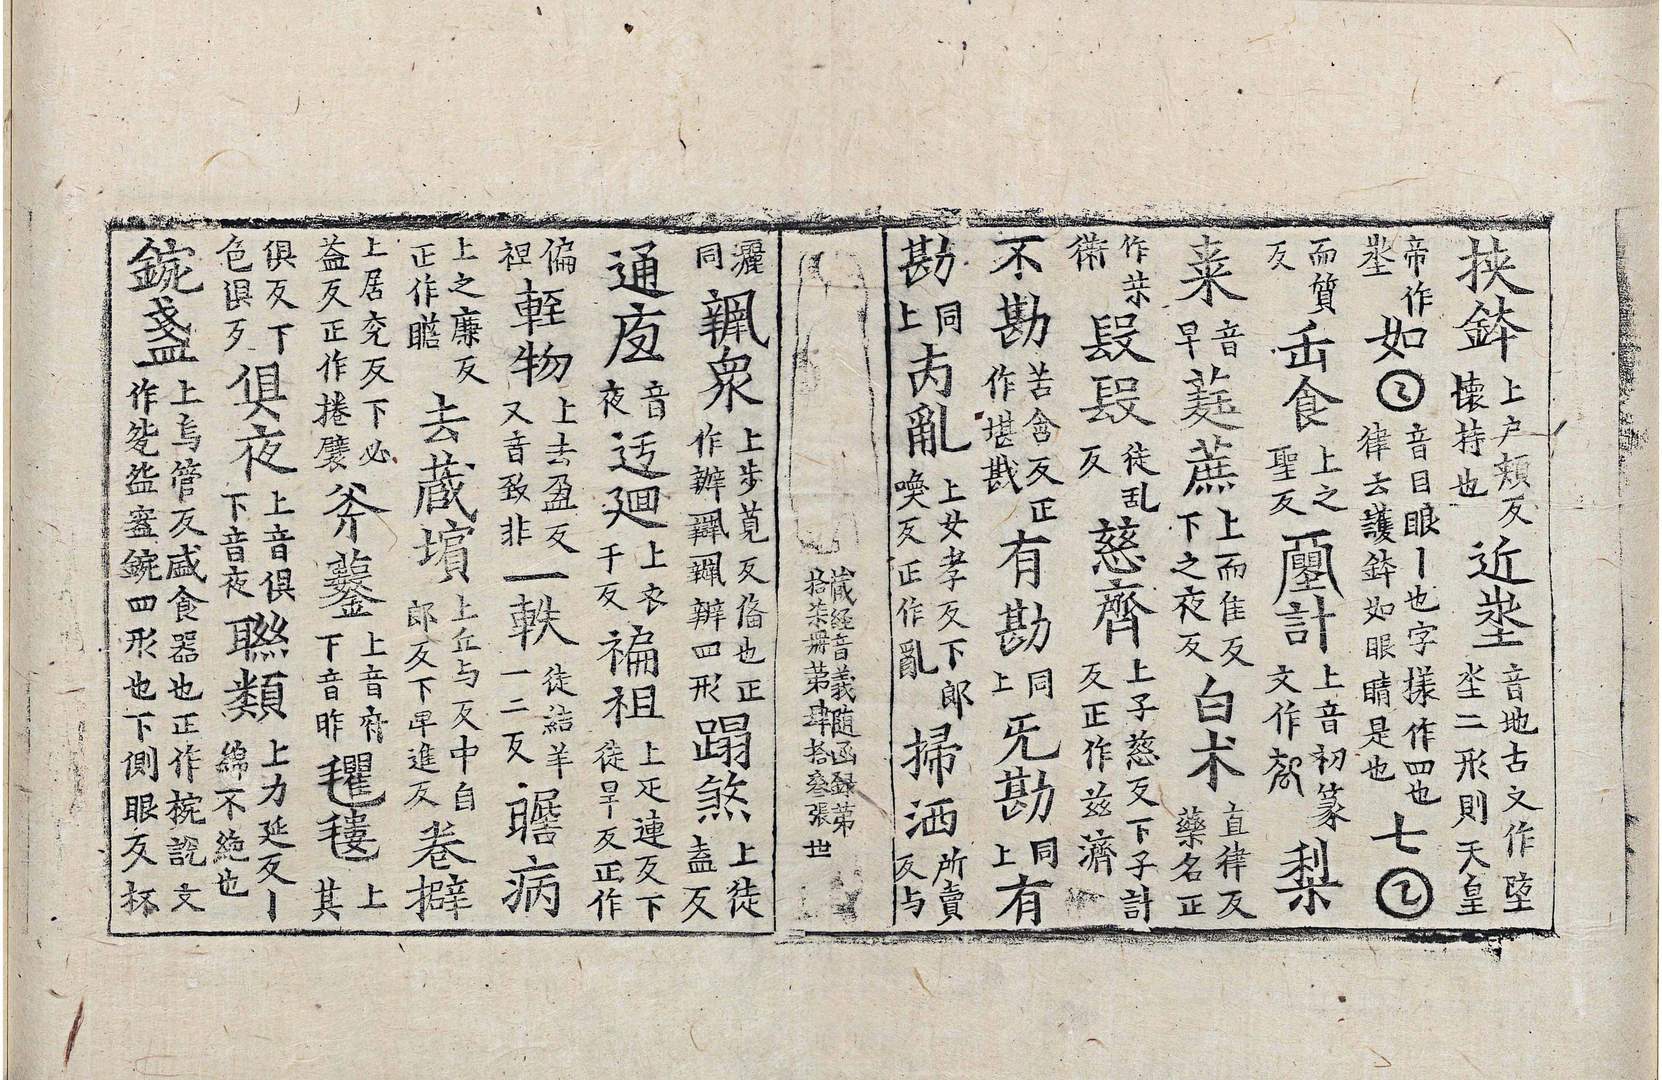 挟鉢上户頬反懐持也近埊音地古文作墬埊二形則天皇
帝作埊如𠥱音目眼丨也字様作囬也律去護鉢如眼睛是也七𠥱
而質反缶食上之聖反壐計上音初篆文作㓞梨
桒音早蕤蔗上而隹反下之夜反白术直律反藥名正
作茶術叚叚徒乱反慈齊上子慈反下子計反正作兹濟
不勘苦含反正作堪戡有勘同上旡勘同上有
勘同上丙亂上女孝反下郎喚反正作亂掃洒所賣反与
藏經音義随函録第拾柒册第肆拾叁張世
灑同辬衆上步莧反俻也正作辦辬辬辧四形蹋煞上徒盍反
通疲音夜迃廻上衣千反褊袒上疋連反下徒旱反正作
偏裎輊物上去盈反又音致非一軼徒結羊一二反瞻病
上之廉反正作瞻去蔵墳上丘与反中自郎反下早進反卷擗
上居兖反下必益反正作捲襞斧鑿上音府下音昨氍毹上其
俱反下色俱反俱夜上音俱下音夜聮類上力延反丨綿不絶也
鋺盞上烏管反盛食器也正作椀說文作㿿盌䀂鋺四形也下側眼反杯